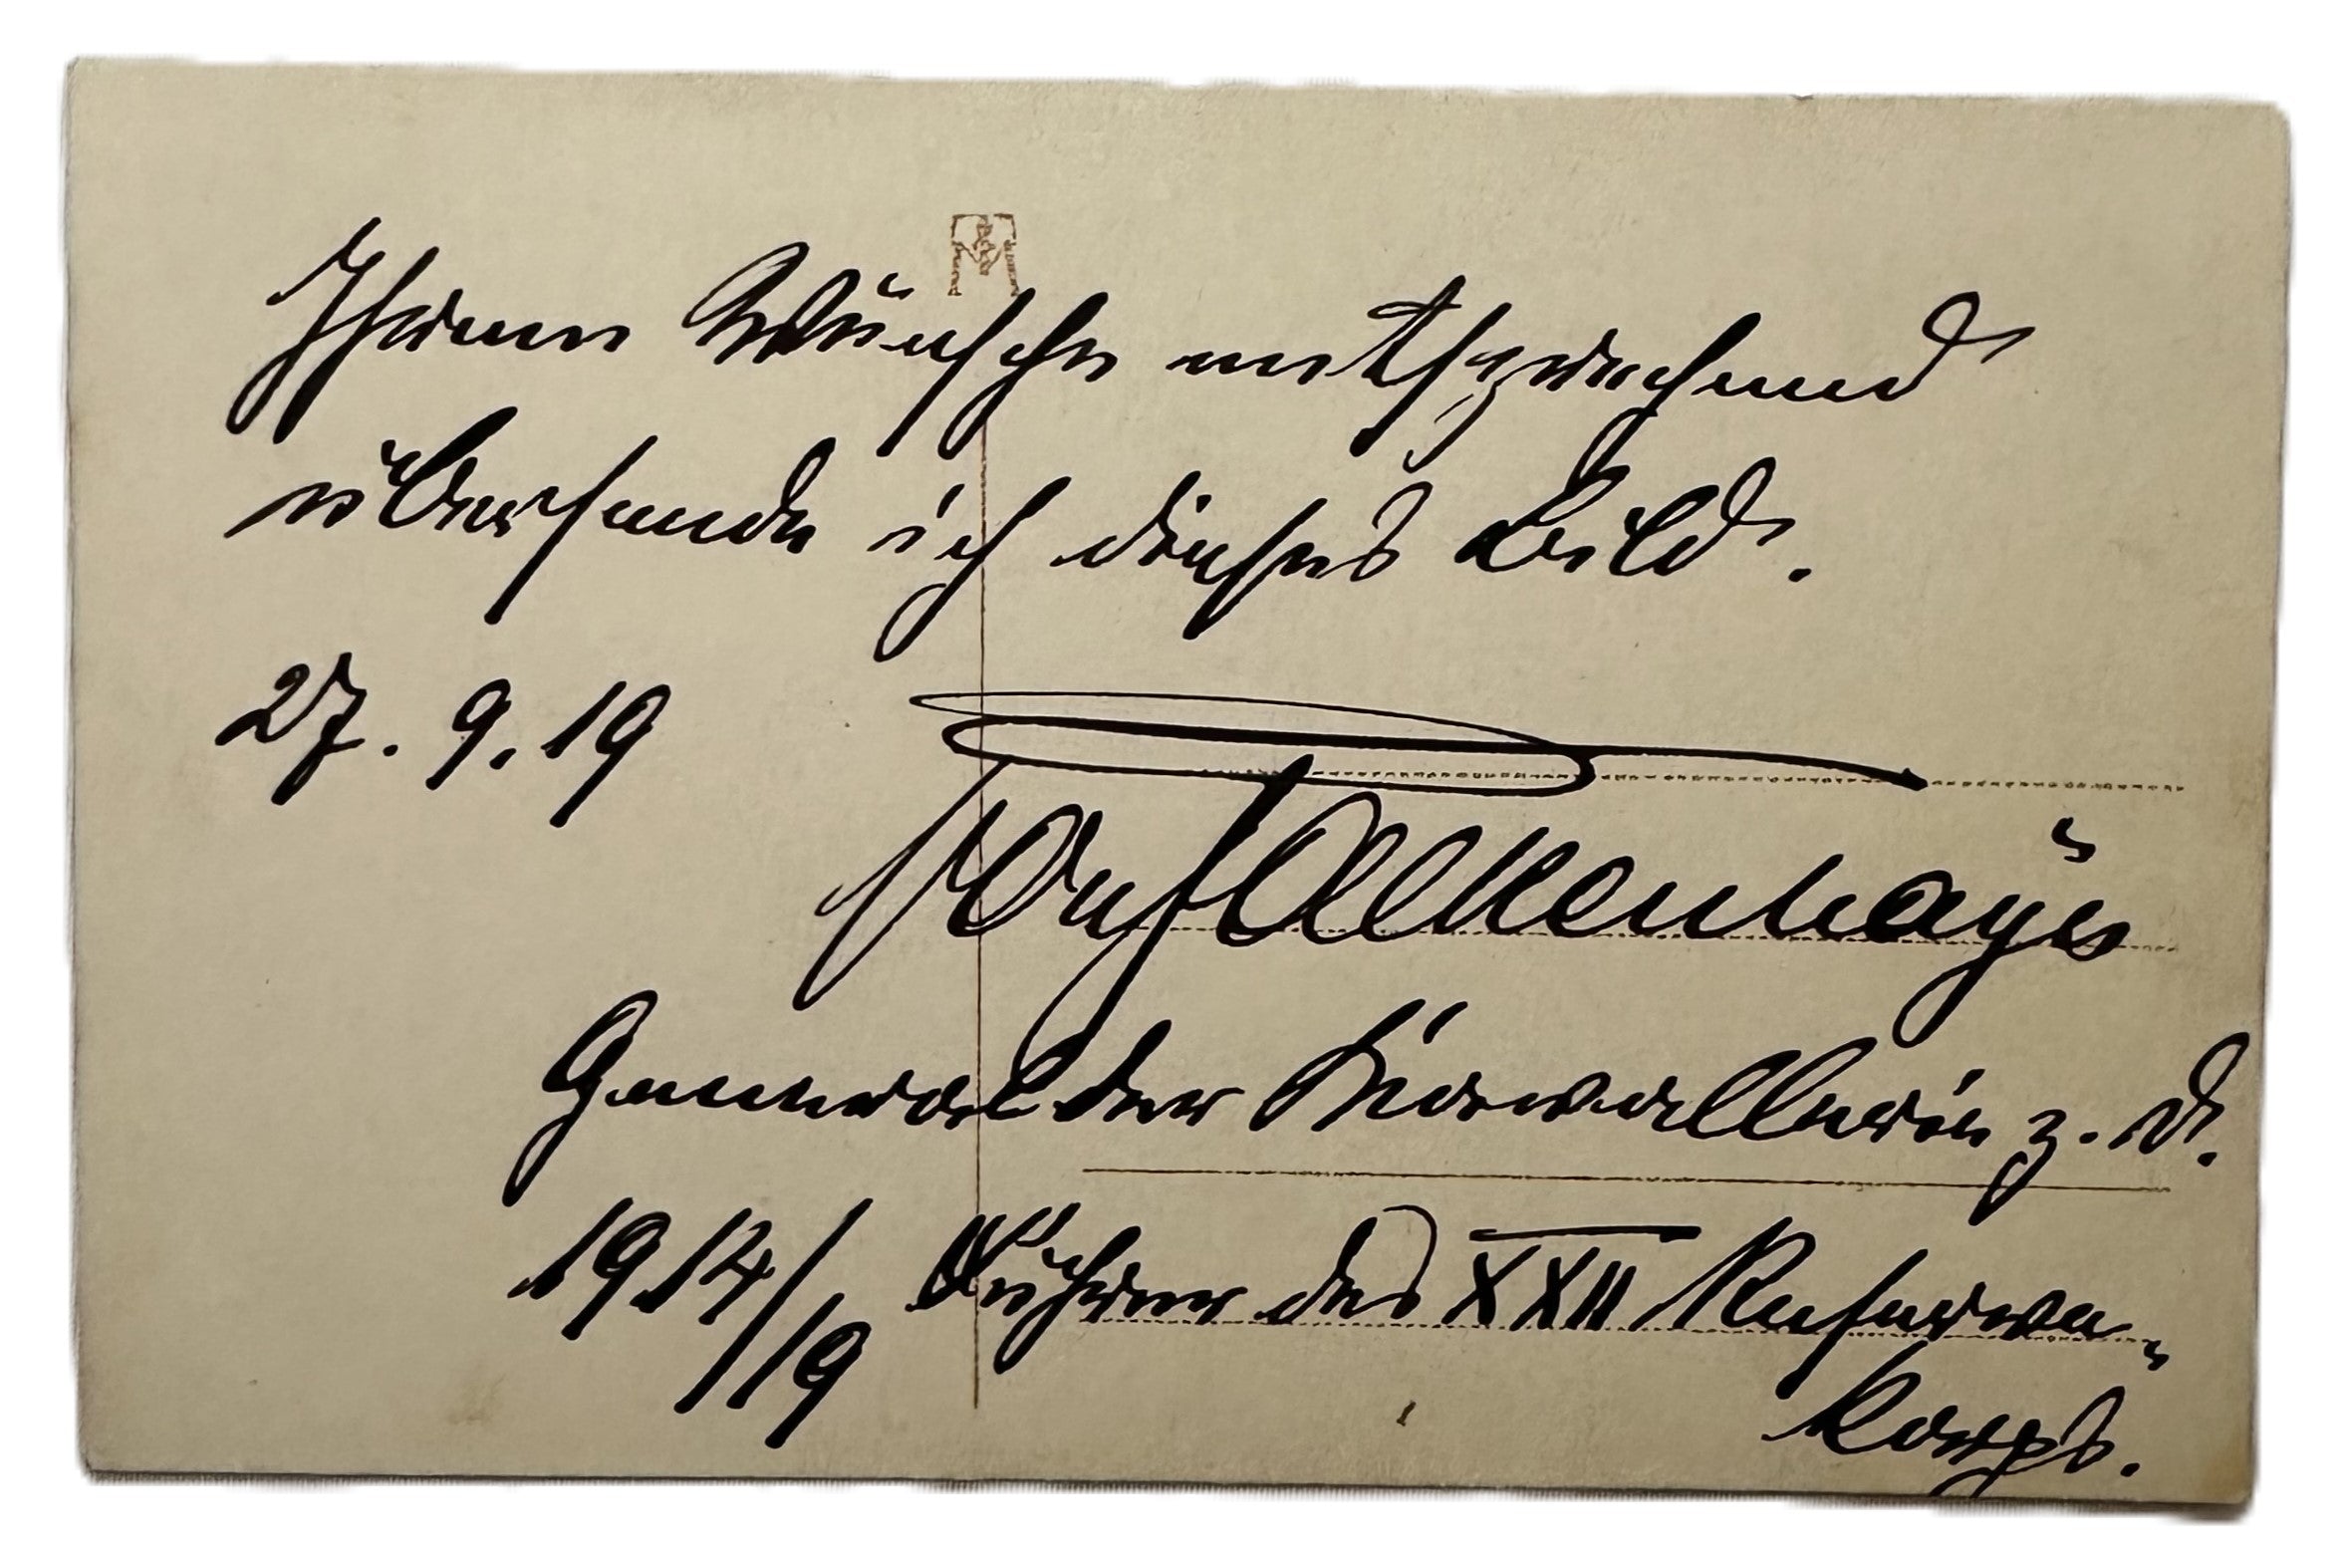 Ihrem Wunsche entsprechend
übersende ich dieses Bild.
27. 9. 19
von Falkenhayn
General der Kavallerie z. D.
1914/19 Führer des XXII Reserve-
korps.